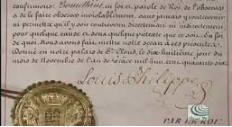 confirmons. Promettons, en foi et parole de Roi de l'observer
et de le faire observer inviolablement, sans jamais y contrevenir
ni permettre qu'il y soit contrevenu directement ni indirectement
pour quelque cause et sous quelque prétexte que ce soit. En foi
de quoi, Nous avons fait mettre notre sceau à ces présentes.
Donné en notre palais de St Cloud, le dix-huitième jour du
mois de Novembre de l'an de Grâce mil huit cent quarante six
Louis Philippe
PAR LE ROI: